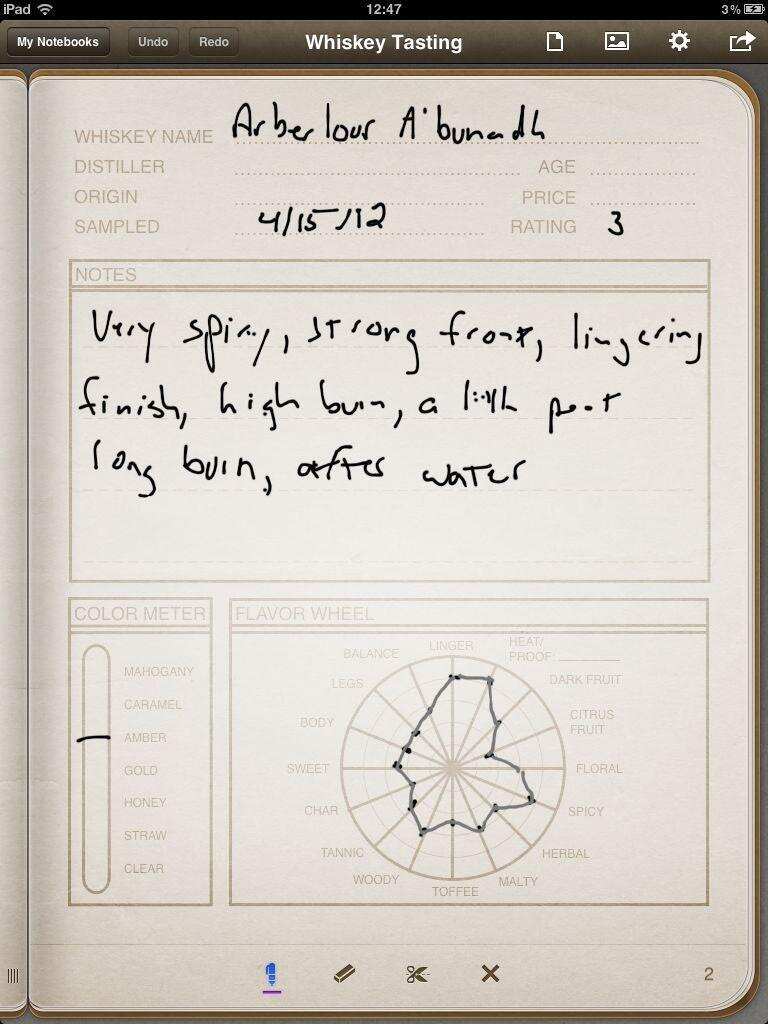 iPad 12:47 3%
My Notebooks Undo Redo Whiskey Tasting
WHISKEY NAME Arberlour A'bunadh
DISTILLER AGE
ORIGIN PRICE
SAMPLED 4/15/12 RATING 3
NOTES
Very spicy, strong front, lingering
finish, high burn, a little peat
long burn, after water
COLOR METER
MAHOGANY
CARAMEL
AMBER
GOLD
HONEY
STRAW
CLEAR
FLAVOR WHEEL
LINGER
HEAT/
PROOF:
DARK FRUIT
CITRUS
FRUIT
FLORAL
SPICY
HERBAL
MALTY
TOFFEE
WOODY
TANNIC
CHAR
SWEET
BODY
LEGS
BALANCE
2